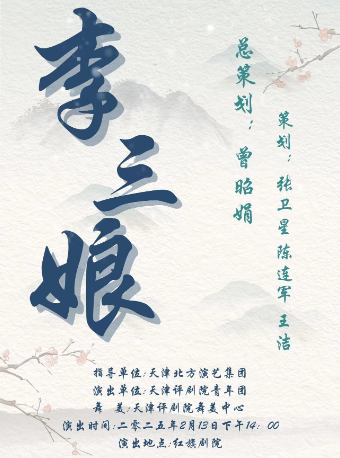 李三娘
总策划：曾昭娟
策划：张卫星 陈连军 王洁
指导单位:天津北方演艺集团
演出单位:天津评剧院青年团
舞 美:天津评剧院舞美中心
演出时间:二零二五年2月13日下午14：00
演出地点:红旗剧院